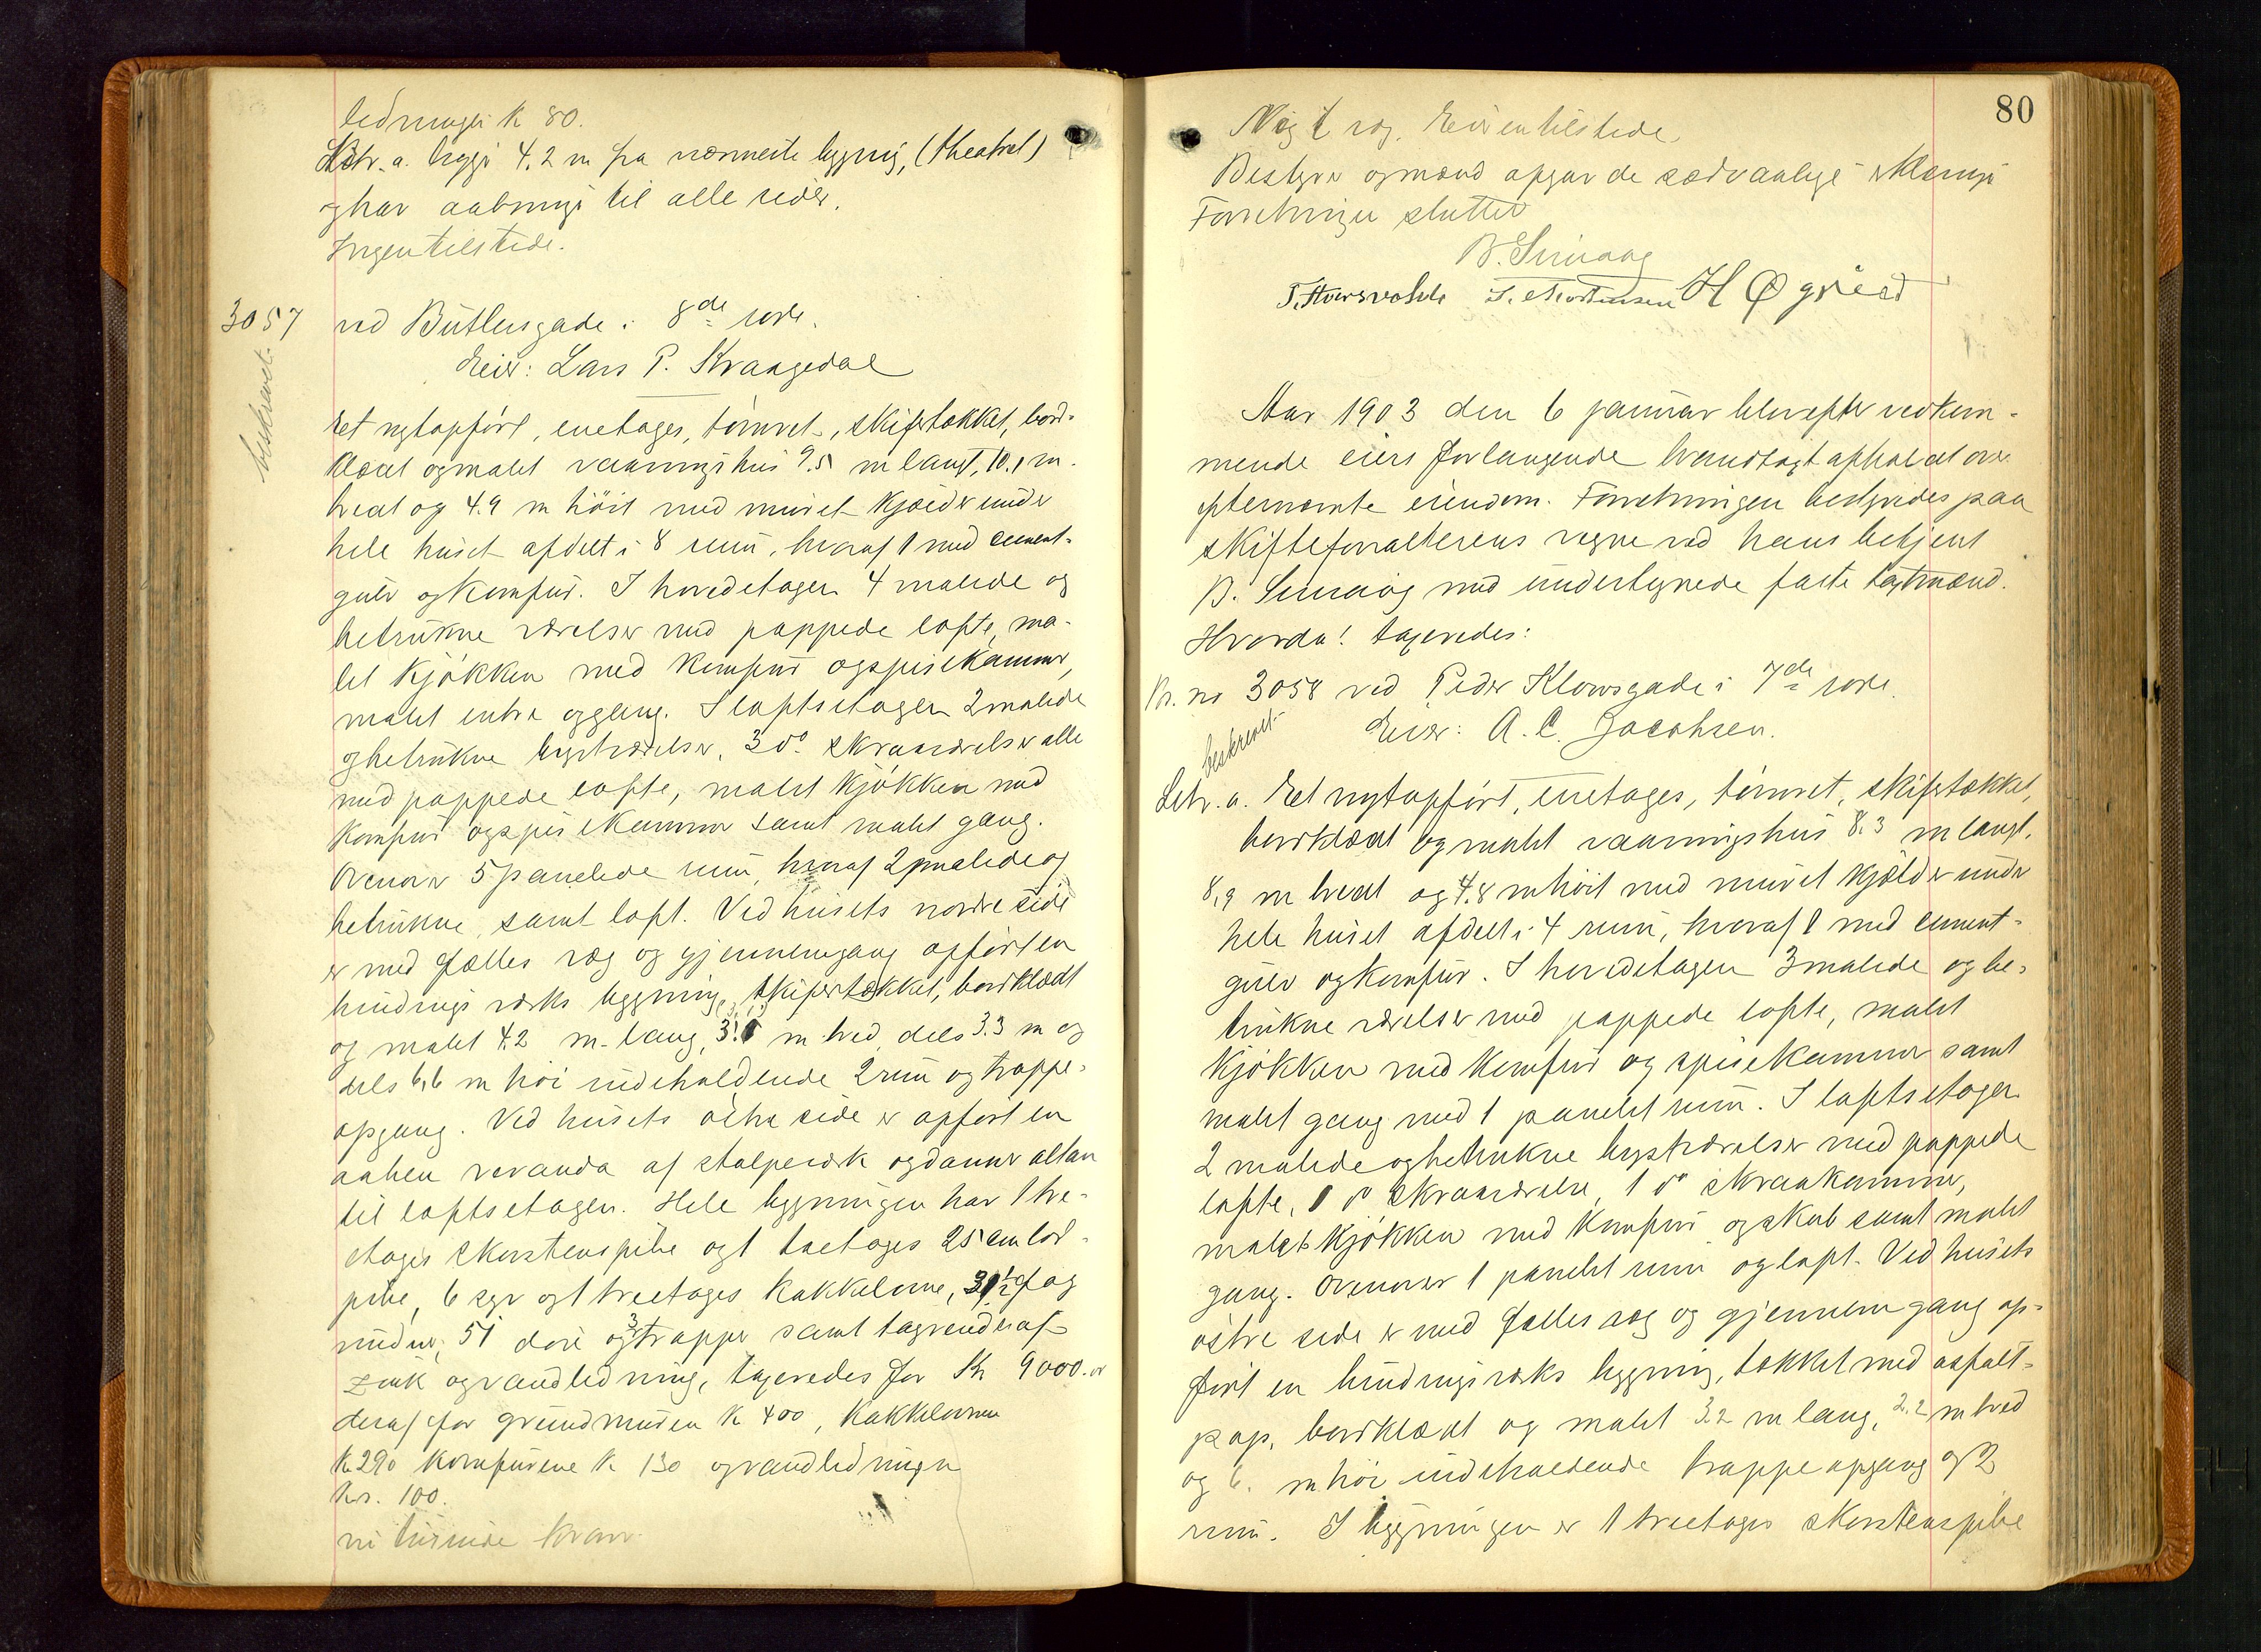 ledninger k 80.
Litr. a. ligger 4,2 m fra nærmeste bygning, (theatret)
og har aabninger til alle sider.
Ingen tilstede.
3057 ved Butlersgade i 8de rode.
beskrevet.
Eier: Lars P. Kraagedal
Et nytopført, enetages, tømret, skifertækket, bord-
klædt og malet vaaningshus 9.5 m langt, 10.1 m.
bredt og 4.9 m høit med muret kjælder under
hele huset afdelt i 8 rum, hvoraf 1 med cement-
gulv og komfur. I hovedetagen 4 malede og
betrukne værelser med pappede lofte, ma-
let kjøkken med komfur og spisekammer,
malet entre og gang. I loftsetagen 2 malede
og betrukne kvistværelser, 3 do skraaværelser alle
med pappede lofte, malet kjøkken med
komfur og spisekammer samt malet gang.
Ovenover 5 panelede rum, hvoraf 2 malede og
betrukne, samt loft. Ved husets nordre side
er med fælles væg og gjennemgang opført en
bindingsværks bygning, skifertækket, bordklædt
og malet 4.2 m. lang, 3.1 m bred, dels 3.3 m og
dels 6,6 m høi indeholdende 2 rum og trappe-
opgang. Ved husets østre side er opført en
aaben veranda af stolpeværk og danner altan
til loftsetagen. Hele bygningen har 1 tre-
etages skorstenspibe og 1 toetages 25 cm lod-
pibe, 6 og 1 treetages kakkelovne, 31 1/2 fag
vinduer, 51 døre og 3 trapper samt tagrender af
zink og vandledning, taxeredes for Kr 9000.
deraf for grundmuren k 400, kakkelovnene
k 290 komfurene k 130 og vandledningen
kr. 100.
80
Eieren tilstede.
Bestyrer og mænd afgav de sædvanlige erklæringer
Forretningen sluttet
B. Simaog
T. Horsvolde S. Mortensen H Øgreid
Aar 1903 den 6 januar blev efter vedkom-
mende eiers forlangende brandtaxt afholdt over
efternævnte eiendom. Forretningen bestyredes paa
skifteforvalterens vegne ved hans betjent
B. Simaog med undertegnede faste taxtmænd.
Hvorda! taxeredes:
Br. no 3058 ved Peder Klowsgade i 7de rode.
beskrevet-
Eier: A. C. Jacobsen.
Litr. a. Et nytopført, enetages, tømret, skifertækket,
bordklædt og malet vaaningshus 8.3 m langt,
8,9 m bredt og 4.8 m høit med muret kjælder under
hele huset afdelt i 4 rum, hvoraf 1 med cement-
gulv og komfur. I hovedetagen 3 malede og be-
trukne værelser med pappede lofte, malet
kjøkken med komfur og spisekammer samt
malet gang med 1 panelet rum. I loftsetagen
2 malede og betrukne kvistværelser med pappede
lofte, 1 do skraaværelse, 1 do skraakammer,
malet kjøkken med komfur og skab samt malet
gang. Ovenover 1 panelet rum og loft. Ved husets
østre side er med fælles væg og gjennemgang op-
ført en bindingsværks bygning, tækket med asfalt-
pap, bordklædt og malet 3.2 m lang, 2.2 m bred
og 6. m høi indeholdende trappeopgang og 2
rum. I bygningen er 1 treetages skorstenspibe